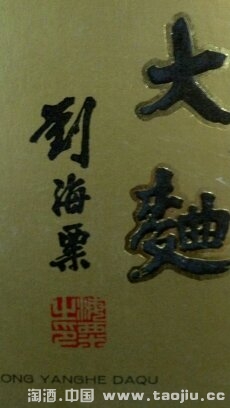 大麯
劉海粟
海粟之印
ONG YANGHE DAQU
淘酒.中国 www.taojiu.cc